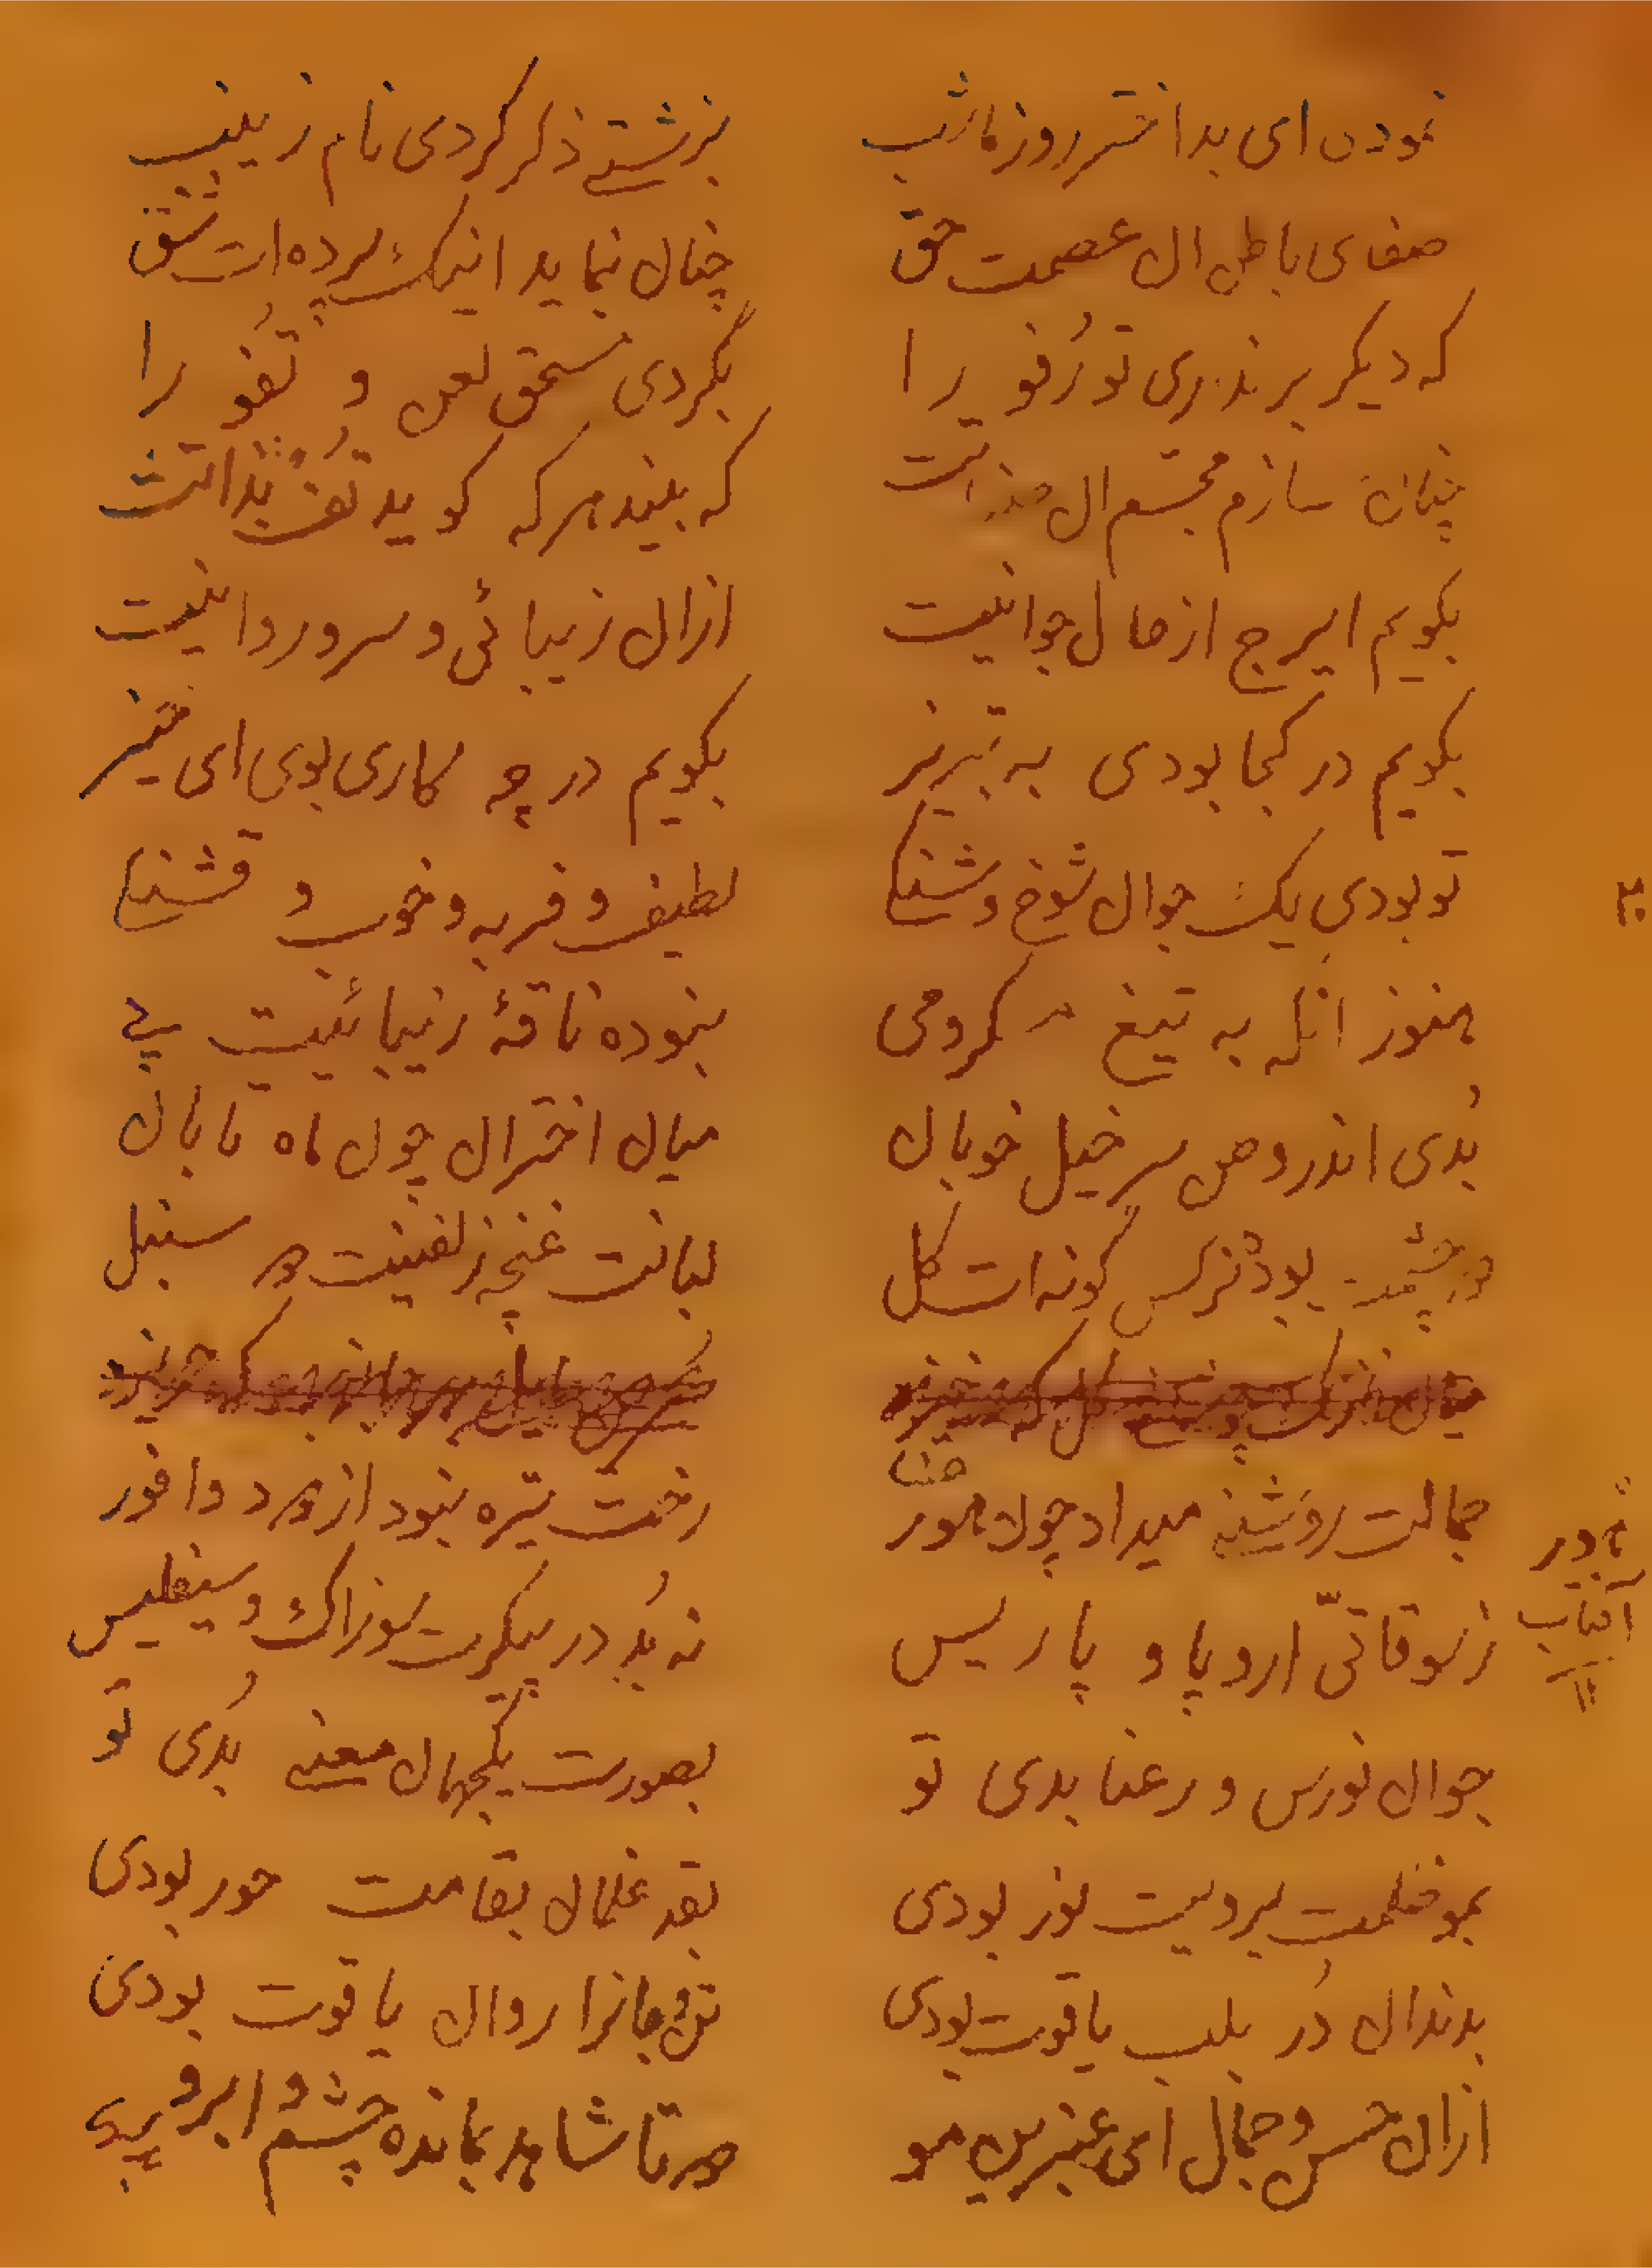 نمودی ای بد اختر روز ما شب بزشتی ذکر کردی نام زینب
صفای باطن آن عصمت حق چنان نماید اینک پرده ات شق
که دیگر بر نداری تو رُفو را بگردی مستحق لعن و تُفو را
چنان سازم مجسّم آن که بیند هر که گوید تُف بذاتت
بگویم ایرج از حال جوانیت ازان زیبائی و سرو روانیت
بگویم در کجا بودی به تبریز بگویم در چه کاری بودی ای
تو بودی یک جوان شوخ و شنگی لطیف و فربه و خوب و قشنگی
هنوز انکه به تیغ کرومی ننموده ناقهٔ زیبائیت پی
بُدی اندر وطن سر خیل خوبان میان اختران چون ماه تابان
دو چشمت بود نرگس گونه ات گل لبانت غنچه زلفینت چو سنبل
جمالت روشنی میداد چون هور رخت تیره نبود از دود وافور
ز سوقاتیّ اروپا و پاریس نه بُد در پیکرت سوزاک و سیفلیس
جوان نورس و رعنا بدی تو بصورت یکجهان معنی بُدی تو
بمو ظلمت برویت نور بودی بقد غلمان بقامت حور بودی
بدندان دُر بلب یاقوت بودی تن و جانرا روان یا قوت بودی
ازان حسن و جمال ای عنبرین مو تا شاهد بمانده چشم و ابرو
۳۰
نادر
آفتاب